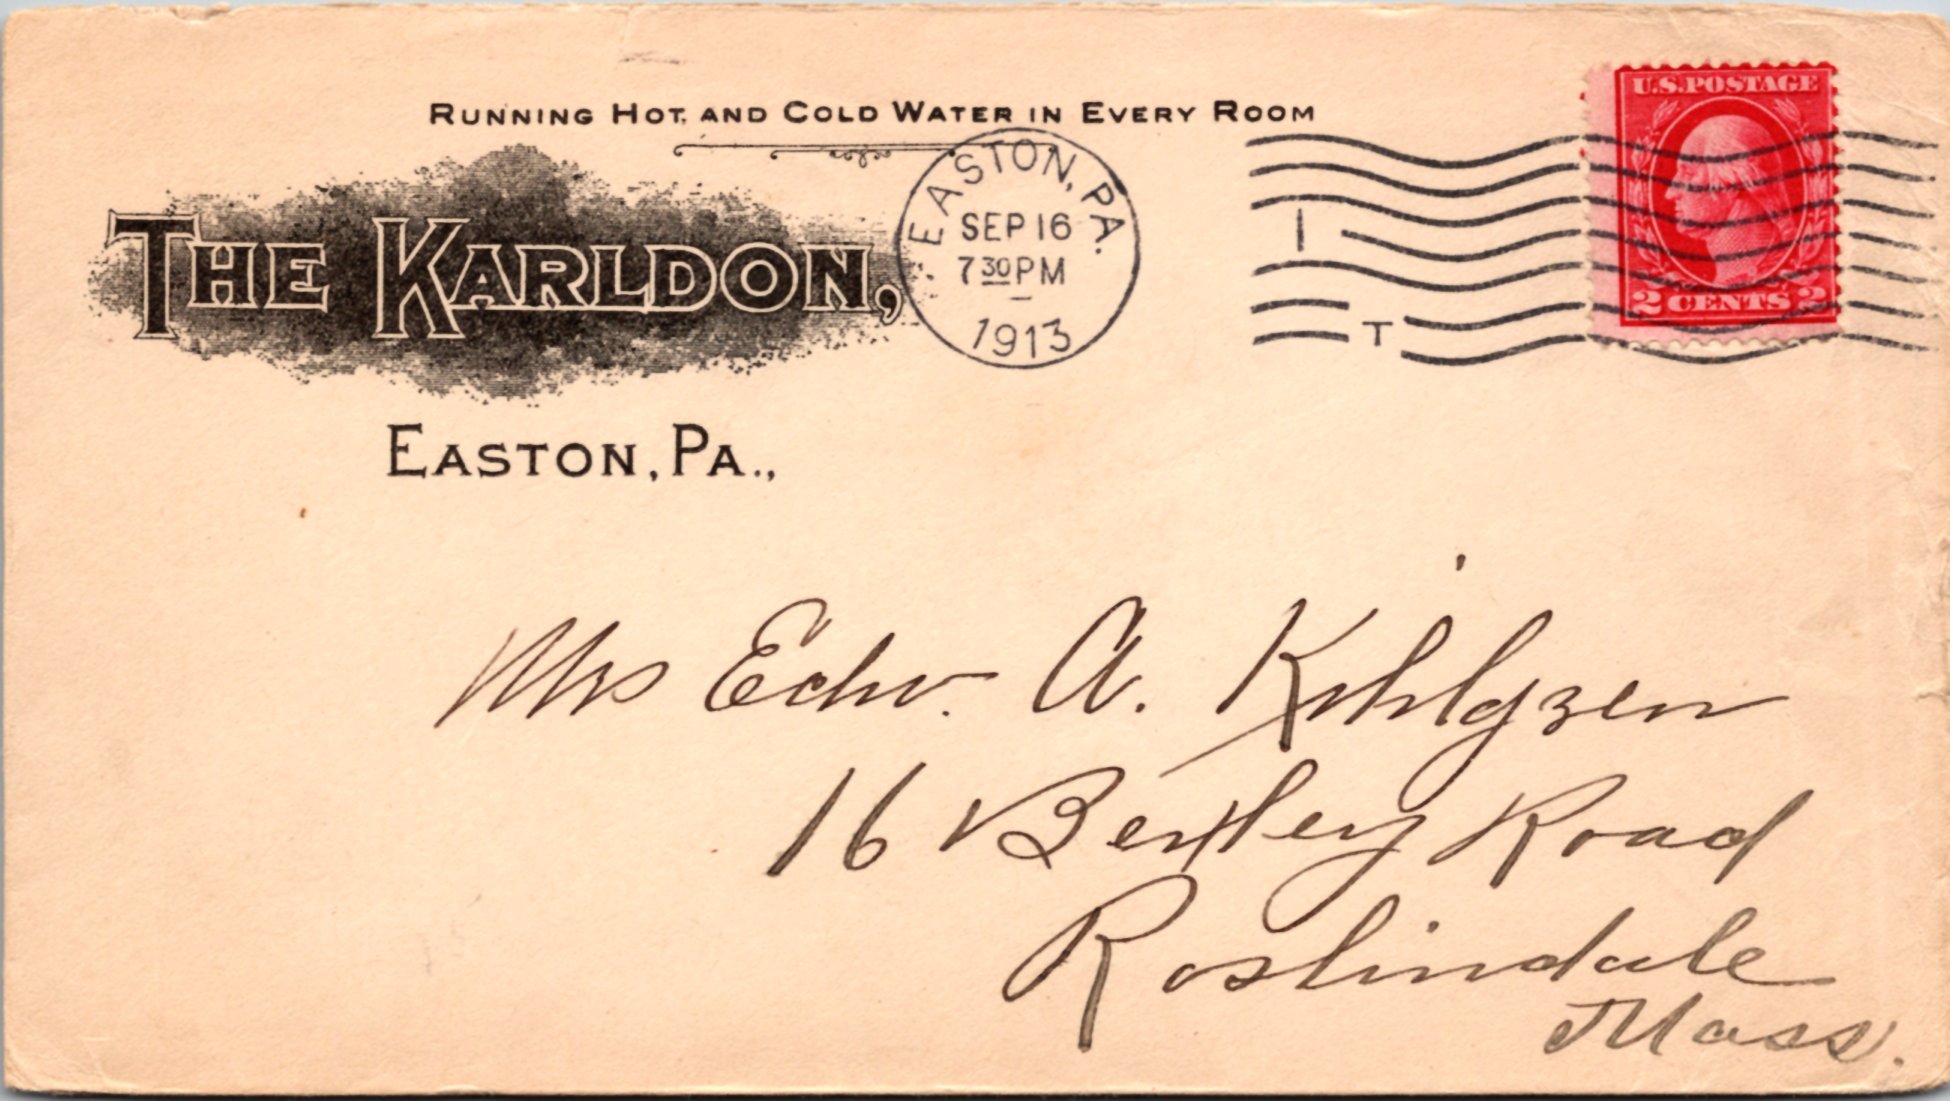 RUNNING HOT AND COLD WATER IN EVERY ROOM
THE KARLDON,
EASTON, PA.,
EASTON, PA.
SEP 16
7 30 PM
1913
I
T
U.S. POSTAGE
2 CENTS 2
Mrs Edw. A. Kihlgren
16 Bexley Road
Roslindale
Mass.